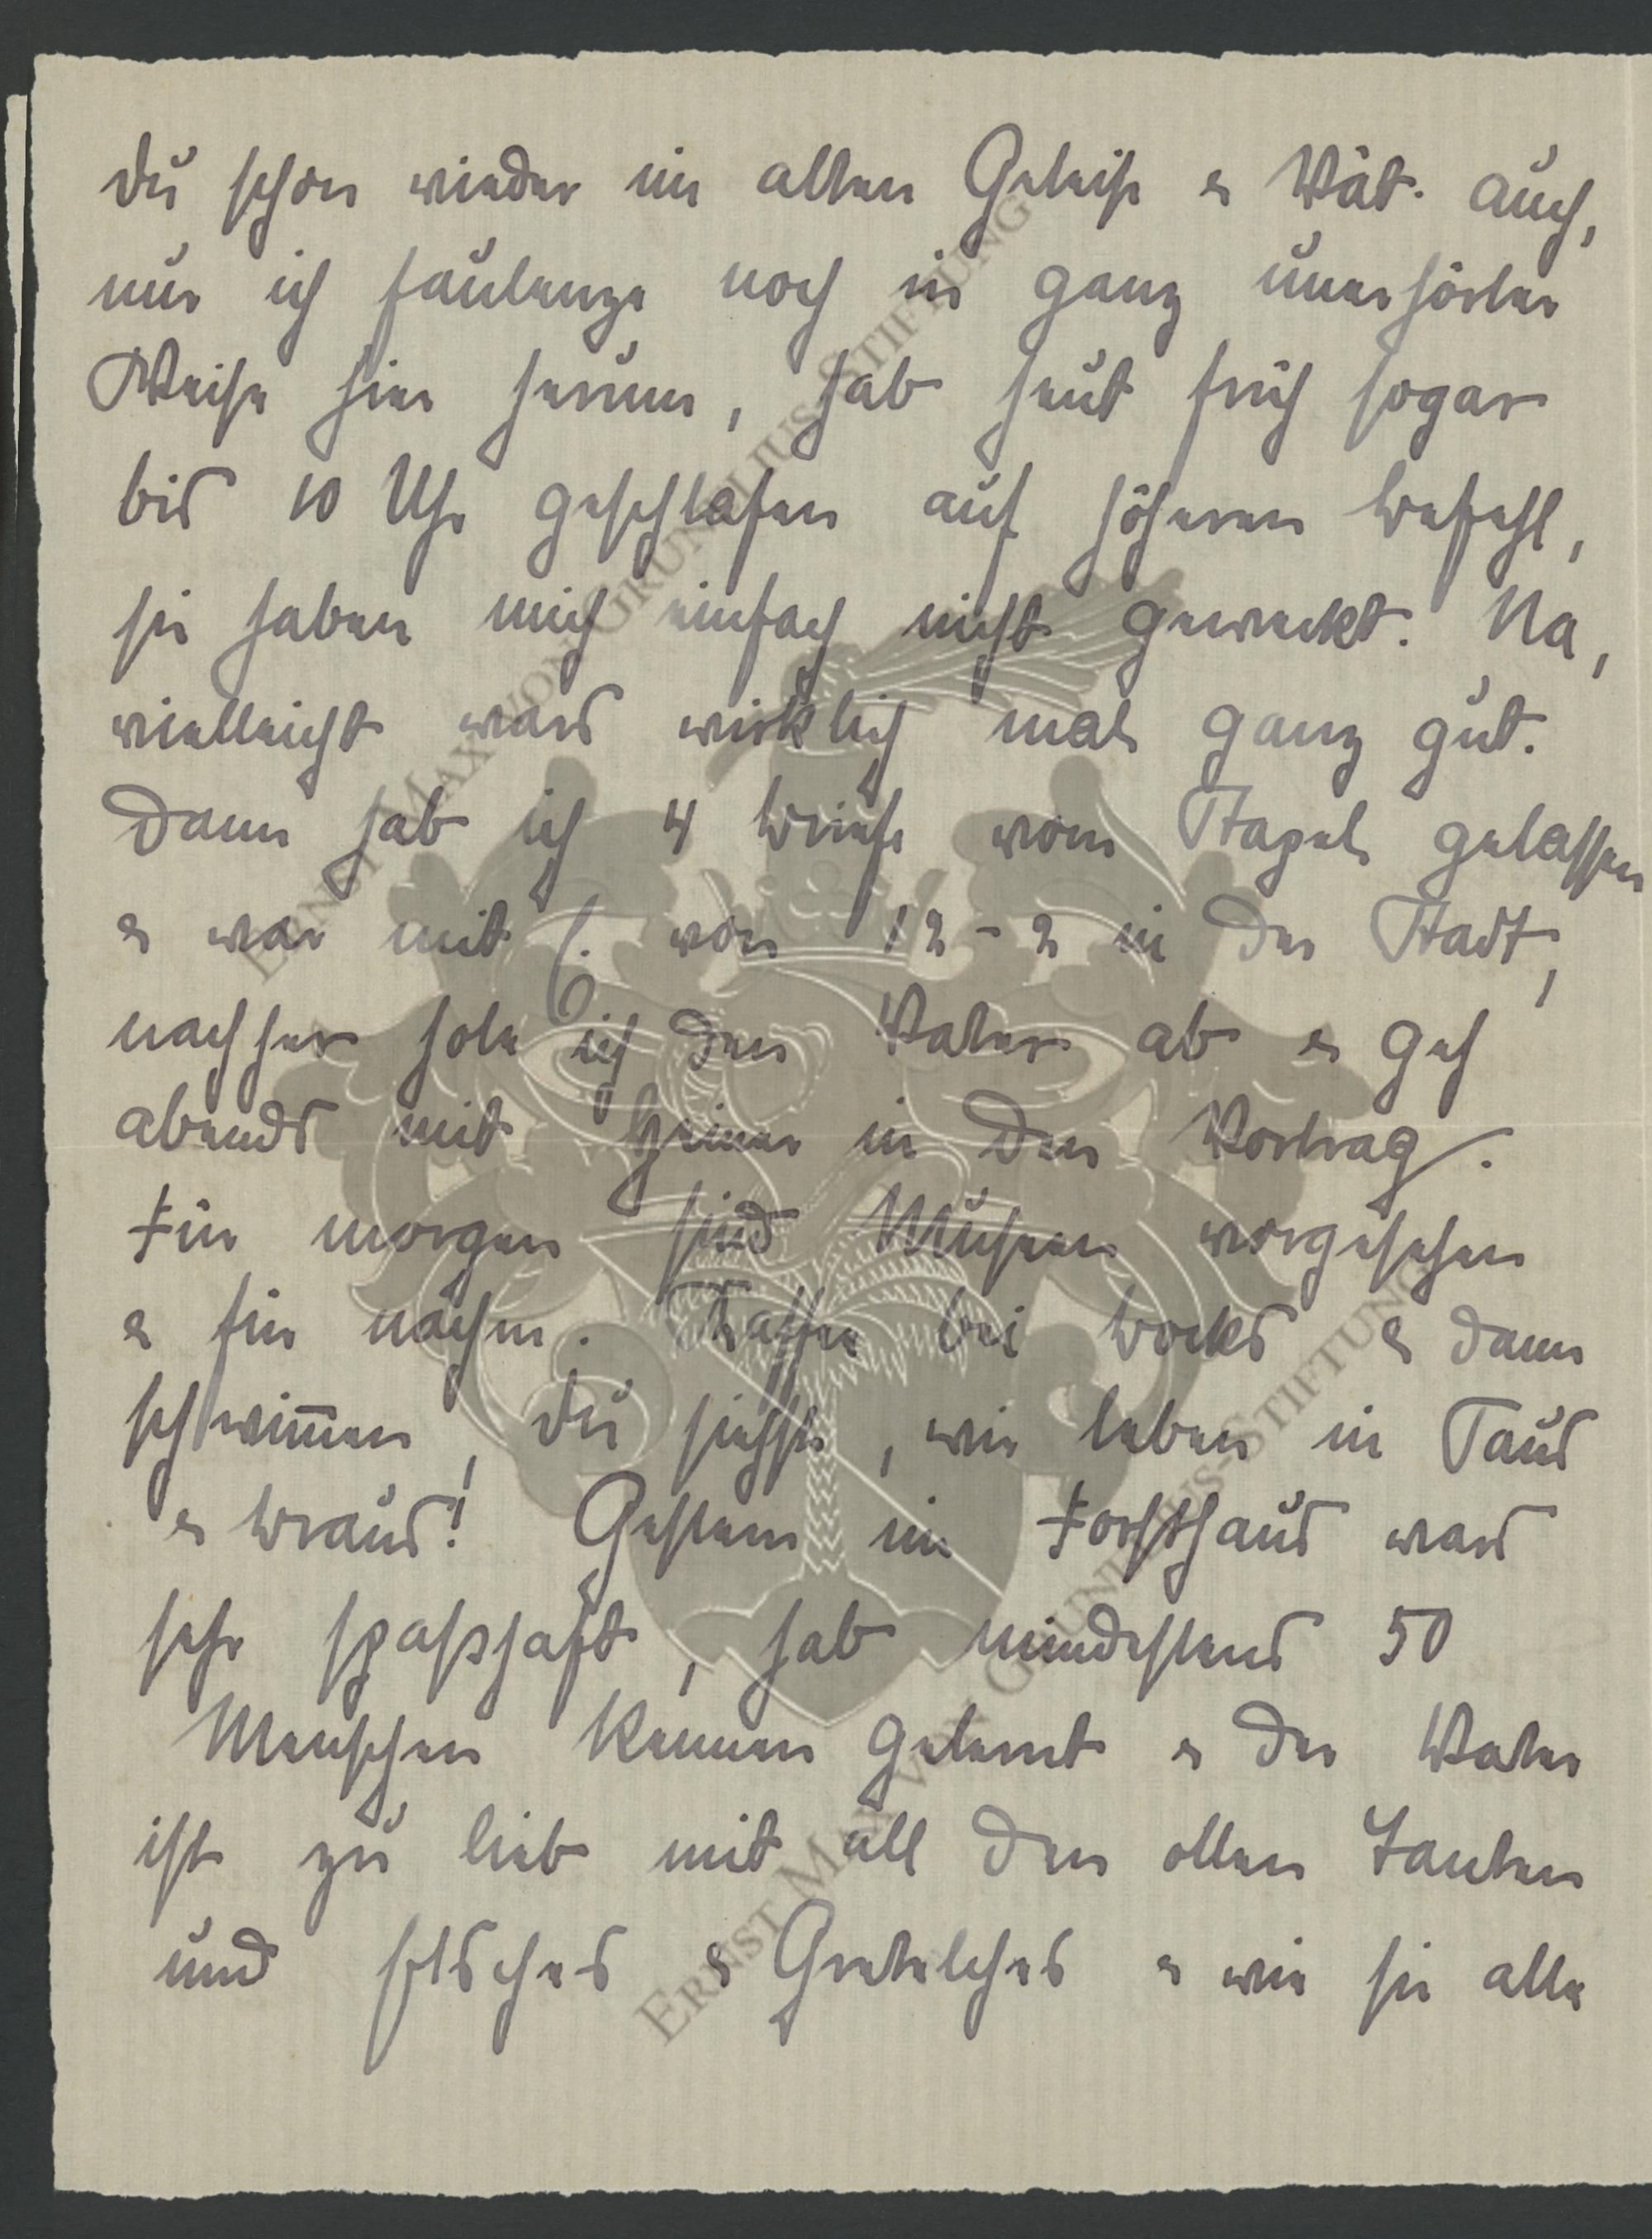 du schon wieder im alten Geleise & Vät. auch,
nur ich faulenze noch in ganz unerhörter
Weise hier herum, hab heut früh sogar
bis 10 Uhr geschlafen auf höheren Befehl,
sie haben mich einfach nicht geweckt. Na,
vielleicht wars wirklich mal ganz gut.
Dann hab ich 4 Briefe vom Stapel gelassen
& war mit von 12-2 in der Stadt,
nachher hole ich den Vater ab & geh
abends mit Heiner in den Vortrag.
Für morgen sind Museen vorgesehen
& für nachm. bei Bocks & dann
schwim̅en, du siehst, wir leben in Saus
& Braus! Gestern im Forsthaus wars
sehr spasshaft, hab mindestens 50
Menschen kennen gelernt & der Vater
ist zu lieb mit all den ollen Tanten
und & Gretelches & wie sie alle
ERNST MAX VON GRUNELIUS-STIFTUNG
ERNST MAX VON GRUNELIUS-STIFTUNG